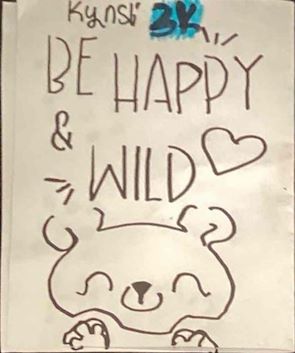 Kynsli 3K
BE HAPPY
&
WILD